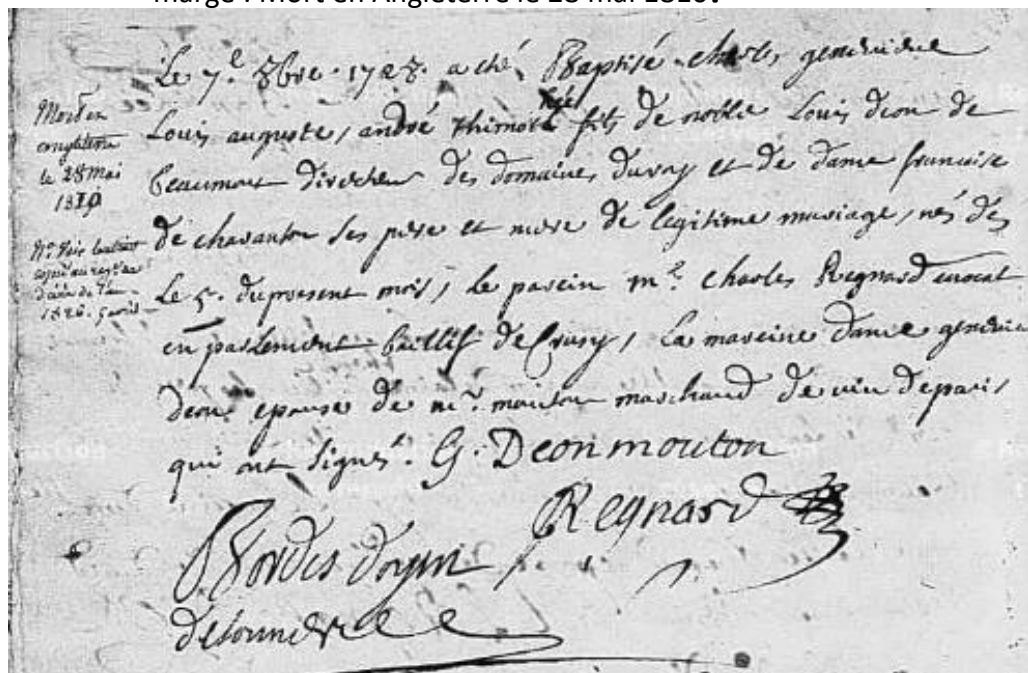 marge : Mort en Angleterre le 28 mai 1810.
Le 7.e 8bre. 1728. a eté Baptisé charles genevieve
Louis auguste, andré thimothée fils de noble Louis deon de
Beaumont directeur des domaines du roy et de dame francoise
de chavanson ses pere et mere de legitime mariage, nés des
Le 5. du present mois, le parein m.r charles Regnard avocat
en parlement baillif de Crusy, La mareine dame genevieve
deon epouse de m.r mouton marchand de vin de paris
qui ont signés. G. Deonmouton
Regnard
Bordes doyen
de tonnerre
Mort en
angleterre
le 28 mai
1810